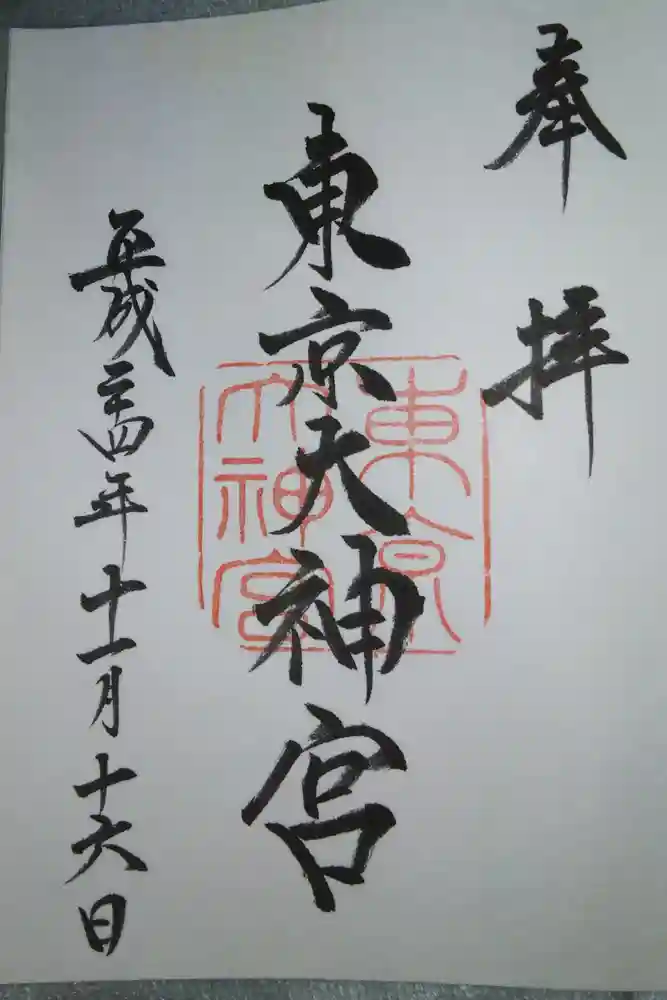 奉拝
東京大神宮
東京大神宮
平成二十四年十一月十六日